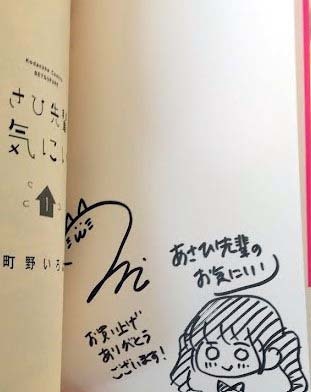 Kodansha Comics
さひ先輩
気にい
1
町野いろ
あさひ先輩の
お気にいり
お買い上げ
ありがとう
ございます!